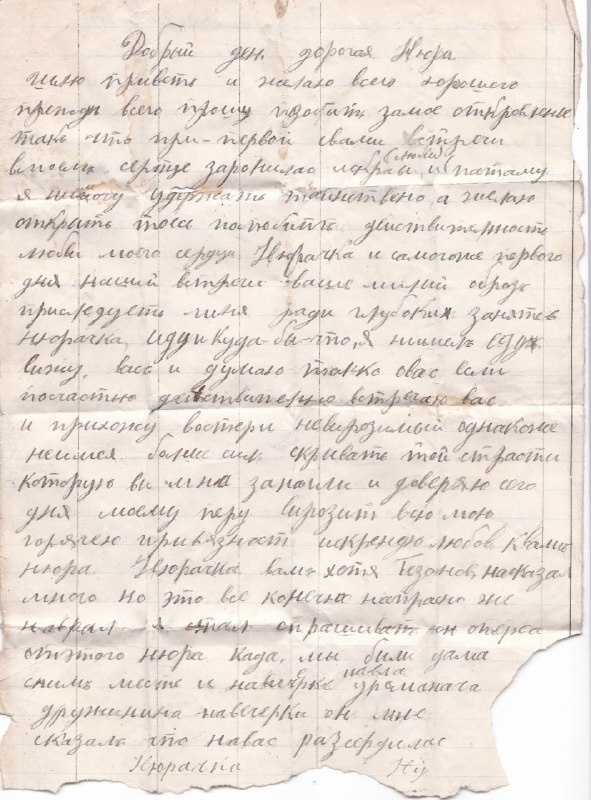 Добрый ден дорогая Нюра
шлю приветь и желаю всего хорошего
всего прошу замое откровение
такь что при-первой свами встречи
вмоемь серце заронилас искра любви и патаму
я нимогу удержать таинствено, а желаю
открыть действителность
люби моего сердца Нюрачка и самогоже первого
дня нашей встречи ваше милий образь
приследуеть миня ради глубоких занятев
Нюрачка, идуикуда-бы-что, я
вижу вась и думаю толко овас если
посчастю действително встречаю вас
и прихожу востерг невирозимый однакоже
неимея болие сил скривать той страсти
которую ви мне и доверяю сего
дня моему перу вирозит всю мою
горячею привязност искренюю любов квамь
нюра. Нюрачка вамь хотя насказал
много но это все конечна напрасно же
наврал я стал спрашиват он оперса
отэтого нюра када мы били дама
снимь месте и павла
дружинина навечерки он мне
сказаль что навас разсердилас
Нюрачка Ню